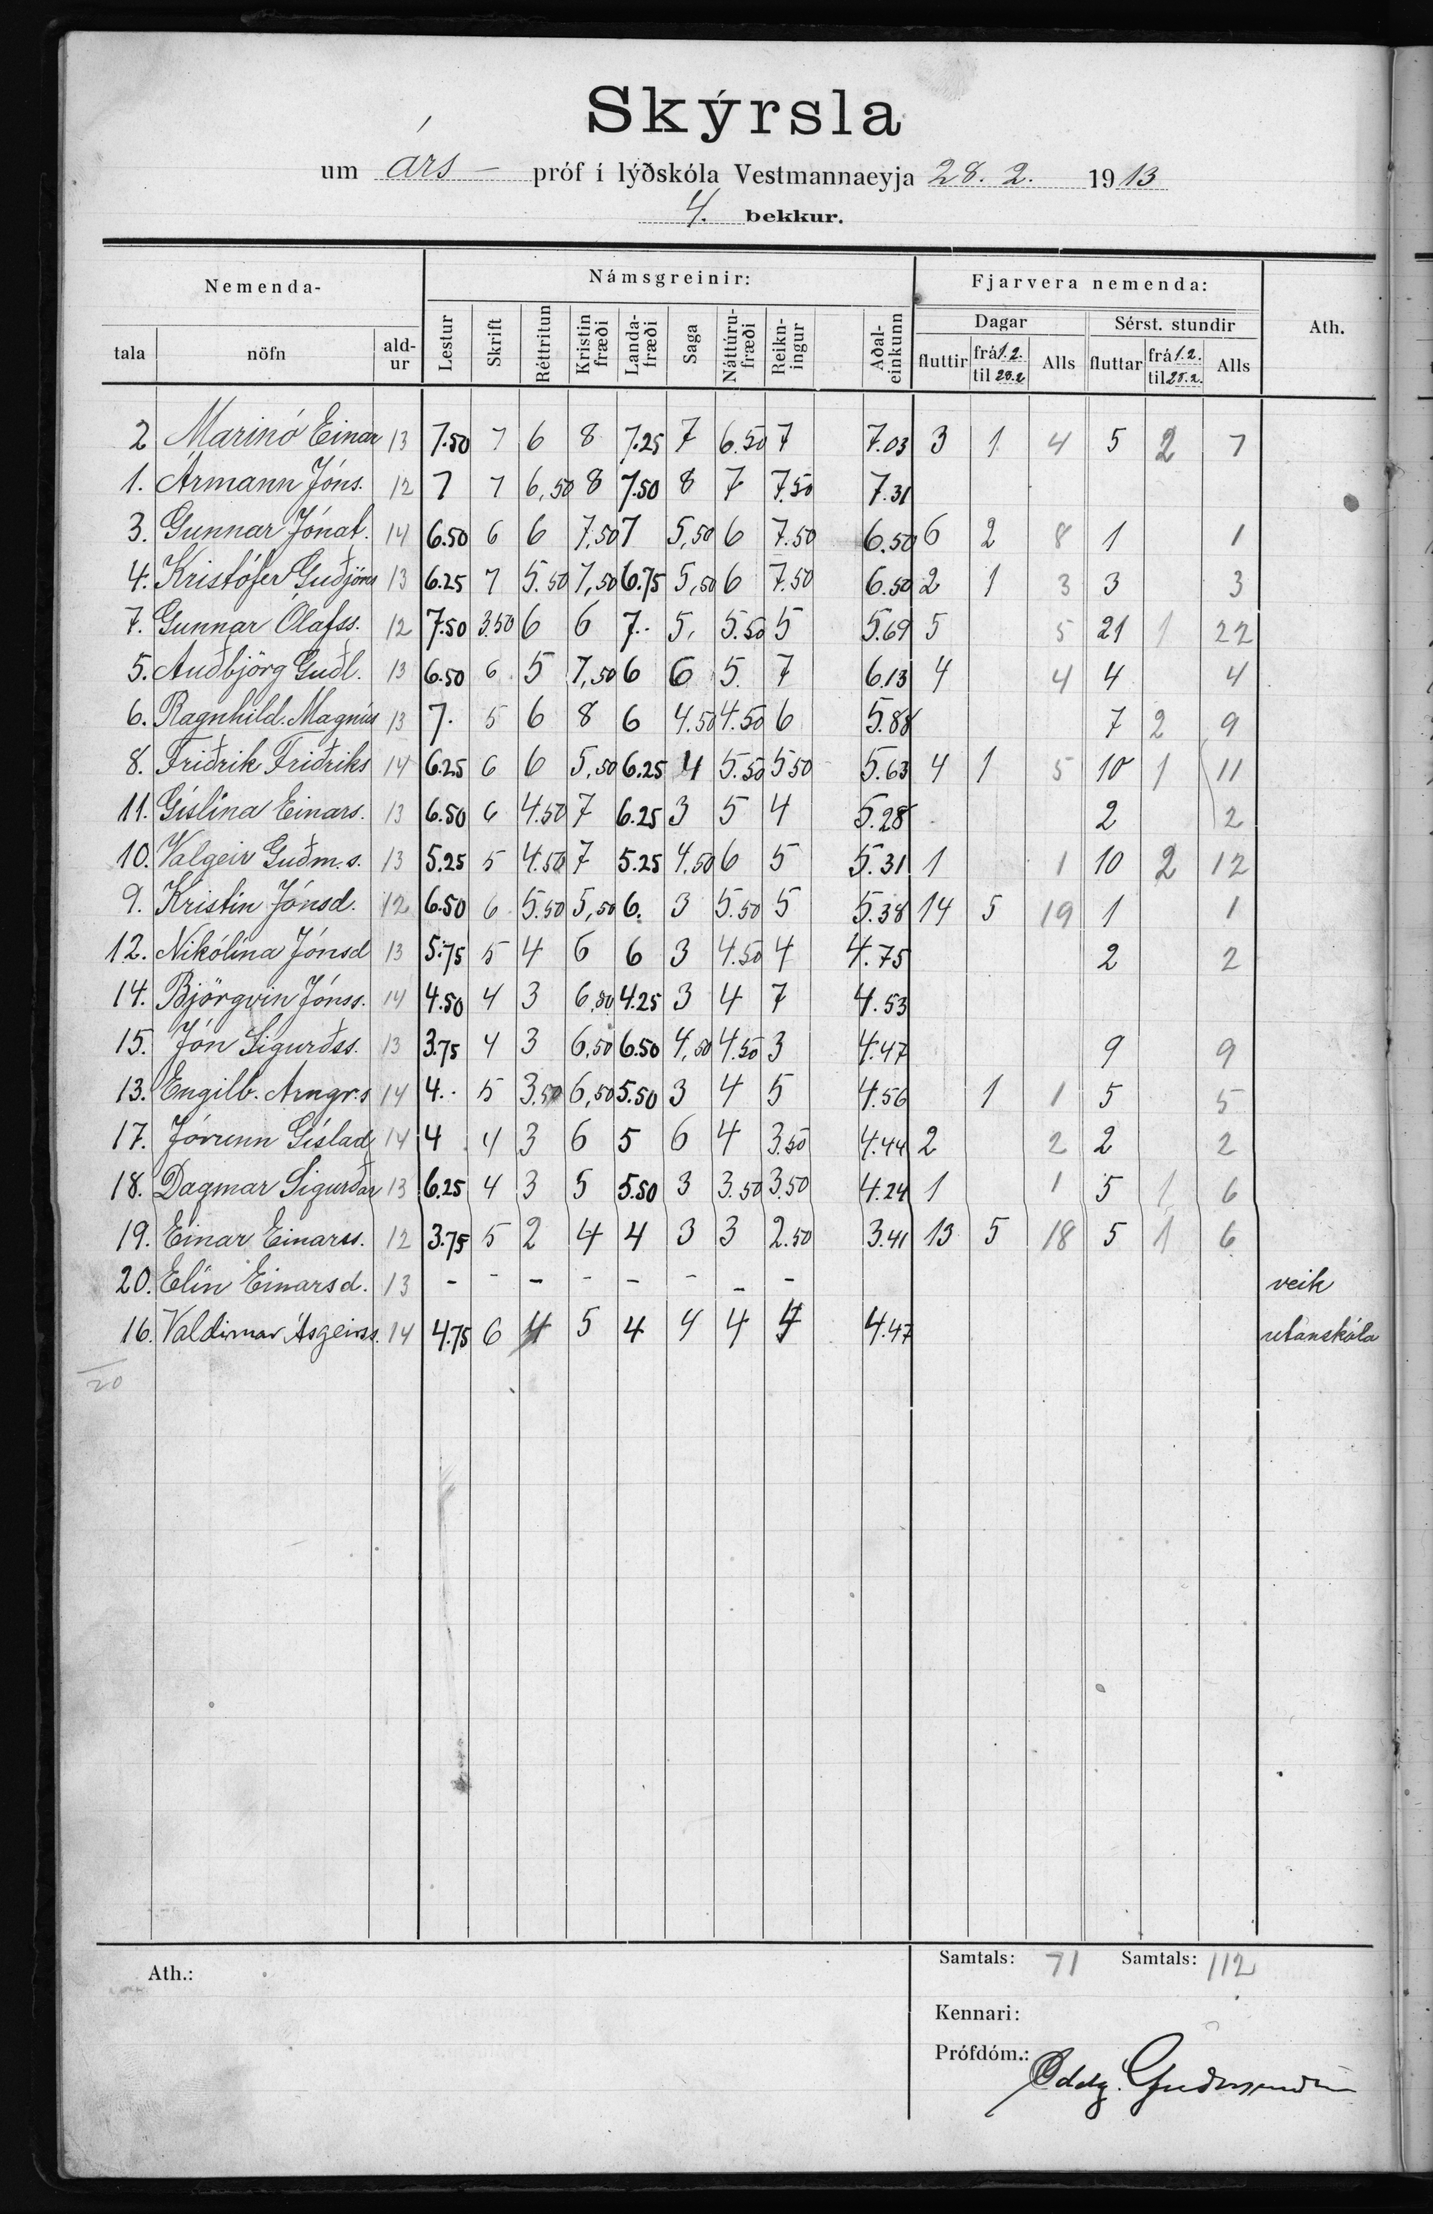 Skýrsla
um árs- próf í lýðskóla Vestmannaeyja 28. 2. 1913
4. bekkur.
Nemenda- Námsgreinir: Fjarvera nemenda: Ath.
Dagar Sérst. stundir
tala nöfn ald-ur Lestur Skrift Réttritun Kristin fræði Landa-fræði Saga Náttúru-fræði Reikn-ingur Aðal-einkunn fluttir frá 1.2. til 28.2 Alls fluttar frá 1.2. til 28.2. Alls
2 Marinó Einar 13 7.50 7 6 8 7.25 7 6.50 7 7.03 3 1 4 5 2 7
1. Ármann Jóns. 12 7 7 6,50 8 7.50 8 7 7.50 7.31
3. Gunnar Jónat. 14 6.50 6 6 7,50 7 5,50 6 7.50 6.50 6 2 8 1 1
4. Kristófer Guðjóns 13 6.25 7 5.50 7,50 6.75 5,50 6 7.50 6.50 2 1 3 3 3
7. Gunnar Ólafss. 12 7.50 3.50 6 6 7.. 5, 5.50 5 5.69 5 5 21 1 22
5. Auðbjörg Guðl. 13 6.50 6 5 7,50 6 6 5. 7 6.13 4 4 4 4
6. Ragnhild. Magnús 13 7. 5 6 8 6 4.50 4.50 6 5.88 7 2 9
8. Friðrik Friðriks 14 6.25 6 6 5,50 6.25 4 5.50 5.50 5.63 4 1 5 10 1 11
11. Gíslína Einars. 13 6.50 6 4.50 7 6.25 3 5 4 5.28 2 2
10. Valgeir Guðm.s. 13 5.25 5 4.50 7 5.25 4,50 6 5 5.31 1 1 10 2 12
9. Kristín Jónsd. 12 6.50 6 5.50 5,50 6. 3 5.50 5 5.38 14 5 19 1 1
12. Nikólína Jónsd 13 5.75 5 4 6 6 3 4.50 4 4.75 2 2
14. Björgvin Jónss. 14 4.50 4 3 6,50 4.25 3 4 7 4.53
15. Jón Sigurðss. 13 3.75 4 3 6,50 6.50 4,50 4.50 3 4.47 9 9
13. Engilb. Arngr.s 14 4.. 5 3.50 6,50 5.50 3 4 5 4.56 1 1 5 5
17. Jórunn Gíslad. 14 4 4 3 6 5 6 4 3.50 4.44 2 2 2 2
18. Dagmar Sigurðar 13 6.25 4 3 5 5.50 3 3.50 3.50 4.24 1 1 5 1 6
19. Einar Einarss. 12 3.75 5 2 4 4 3 3 2.50 3.41 13 5 18 5 1 6
20. Elín Einarsd. 13 - - - - - - - - veik
16. Valdimar Ásgeirss. 14 4.75 6 4 5 4 4 4 4 4.47 utanskóla
20
Ath.: Samtals: 71 Samtals: 112
Kennari:
Prófdóm.: Oddg. Guðmundsen